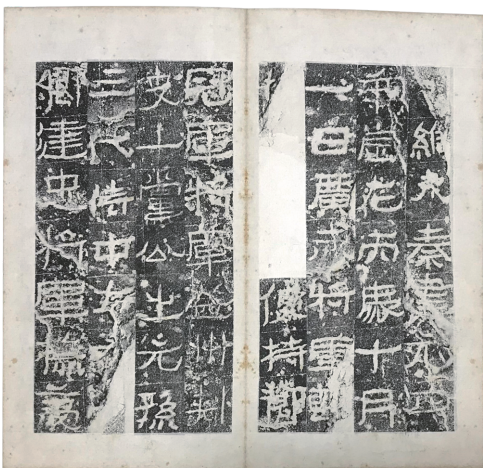 維大秦建元四
年歲在丙辰十月
一日廣武將軍
持節
冠軍將軍益州刺
史上黨公之元孫
三代侍中右
卿建忠將軍撫夷